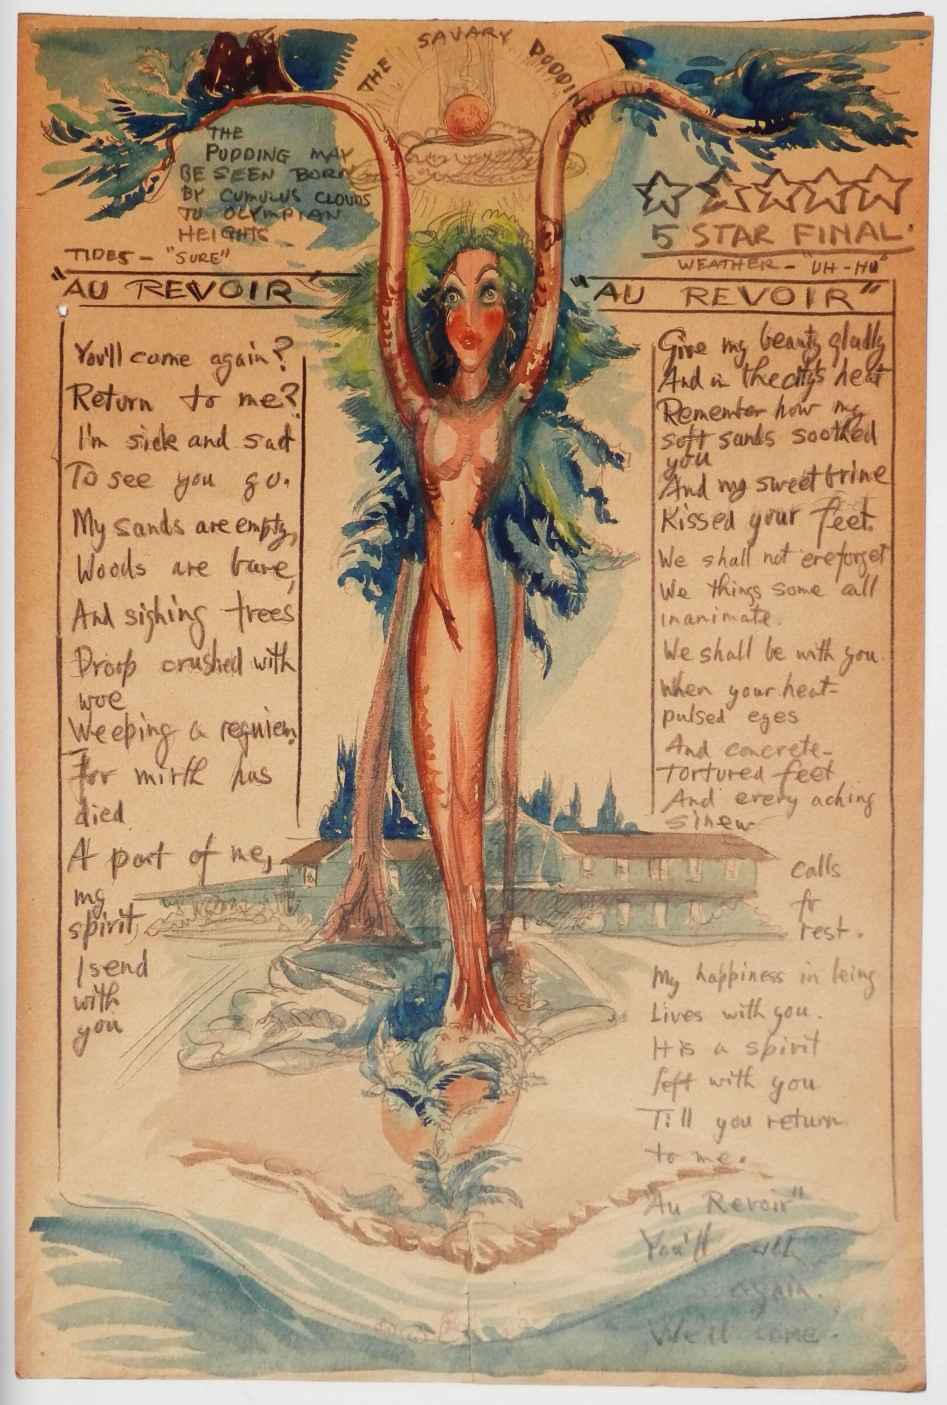 THE SAVARY PUDDING
THE
PUDDING MAY
BE SEEN BORN
BY CUMULUS CLOUDS
TO OLYMPIAN
HEIGHTS
TIDES - "SURE"
5 STAR FINAL.
WEATHER - "UH-HU"
"AU REVOIR"
You'll come again?
Return to me?
I'm sick and sad
To see you go.
My sands are empty,
Woods are bare,
And sighing trees
Droop crushed with
woe
Weeping a requiem
For mirth has
died
A part of me,
my
spirit,
I send
with
you
"AU REVOIR"
Give my beauty gladly
And in the city's heat
Remember how my
soft sands soothed
you
And my sweet brine
Kissed your feet.
We shall not ere forget
We things some call
inanimate.
We shall be with you.
When your heat-
pulsed eyes
And concrete-
tortured feet
And every aching
sinew
calls
for
rest.
My happiness in being
Lives with you.
It is a spirit
left with you
Till you return
to me.
"Au Revoir"
You'll
again.
We'll come.